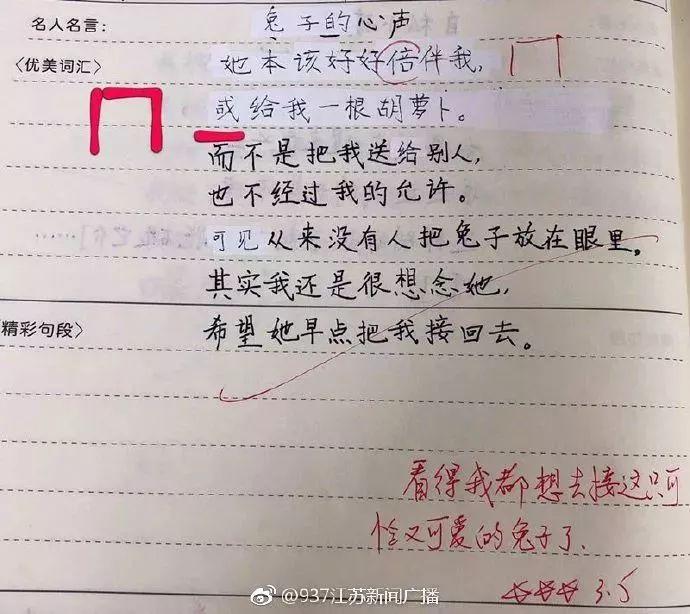 名人名言：
兔子的心声
〈优美词汇〉
她本该好好倍伴我，
或给我一根胡萝卜。
而不是把我送给别人，
也不经过我的允许。
可见从来没有人把兔子放在眼里。
其实我还是很想念她，
〈精彩句段〉
希望她早点把我接回去。
看得我都想去接这只可
怜又可爱的兔子了.
3.5
@937江苏新闻广播